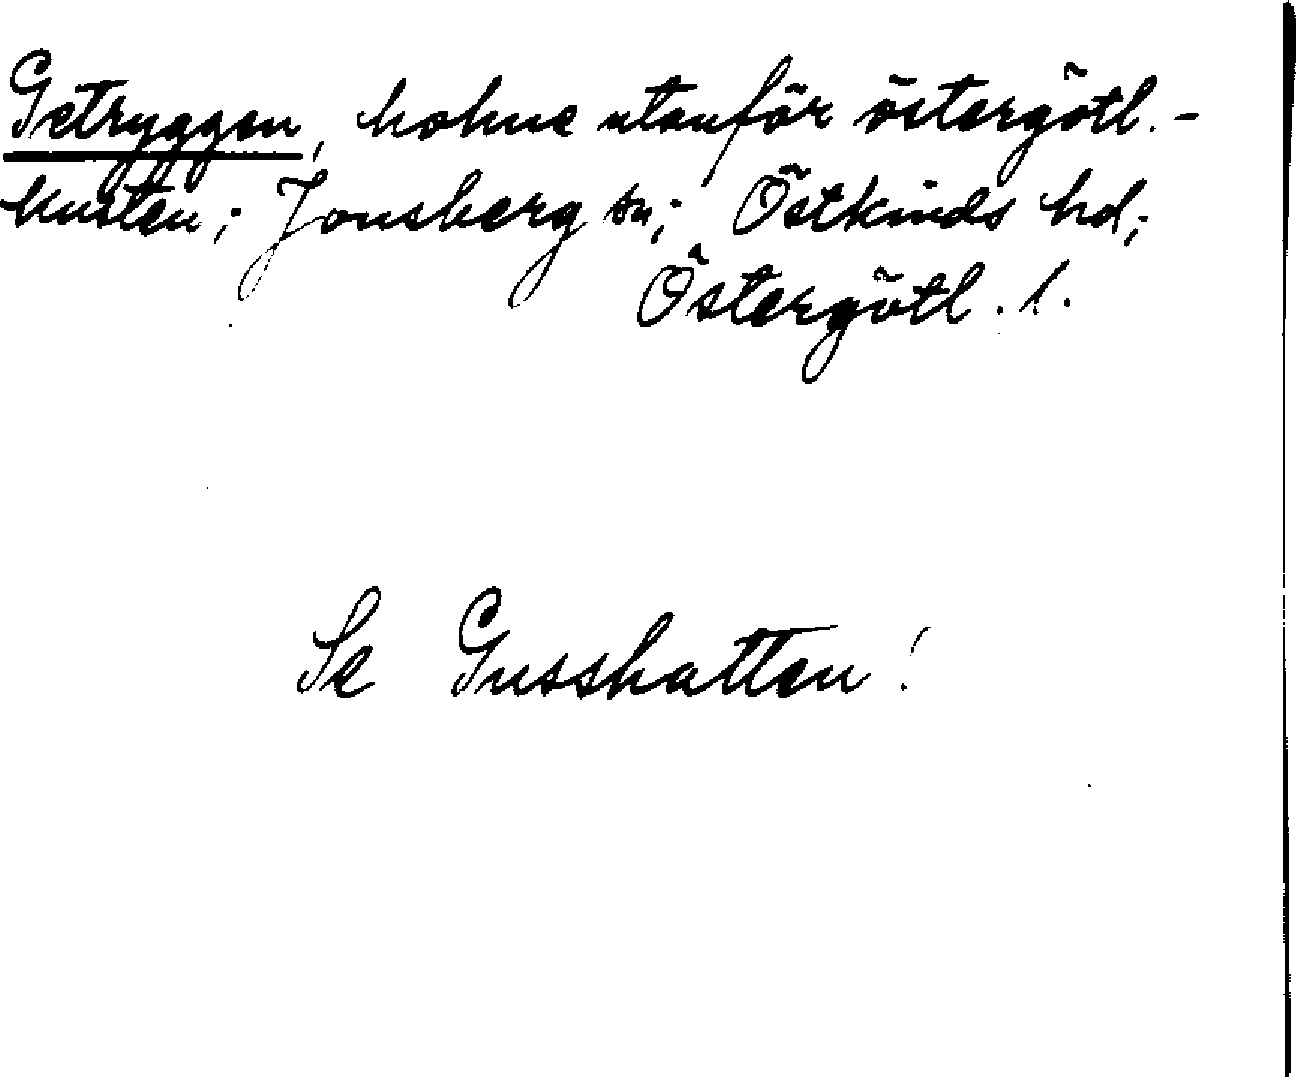 Getryggen, holme utanför östergötl.-
kusten; Jonsberg sn; Östkinds hd;
Östergötl. l.
Se Gusshatten!